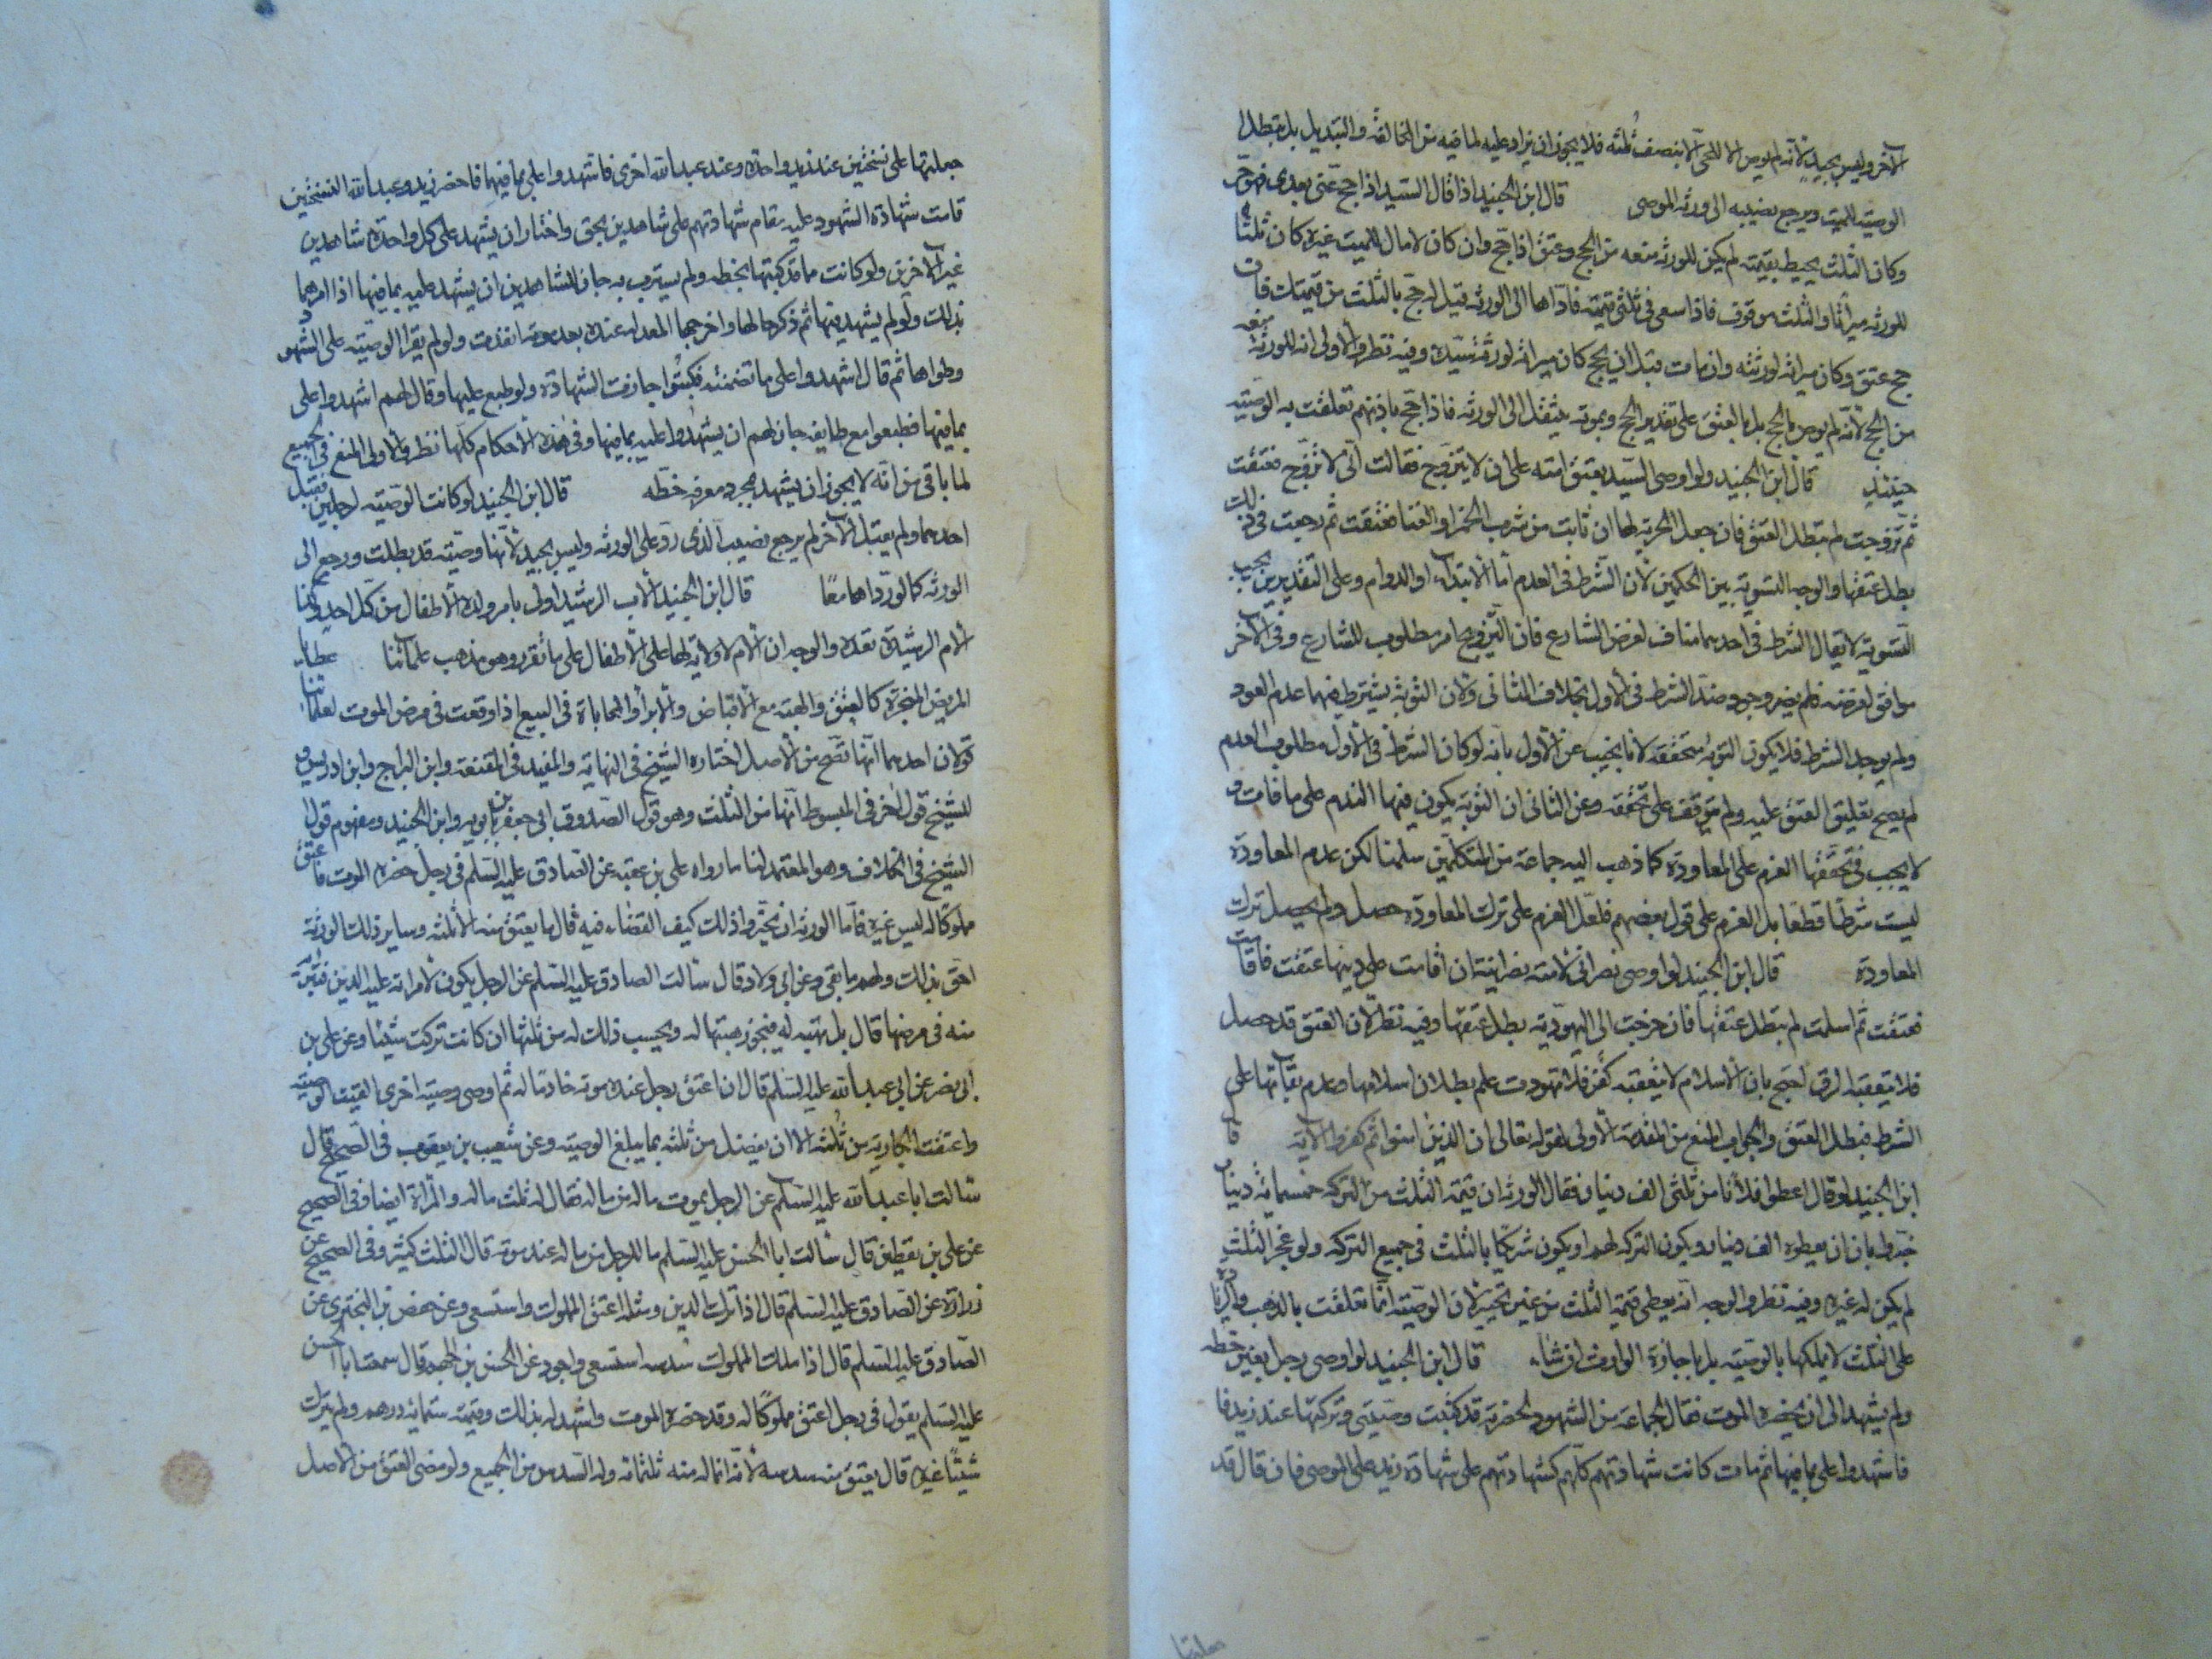 الآخر وليس بجيد لأنه لم يوص الا للحي الا بنصف ثلثه فلا يجوز ان يزاد عليه لما فيه من المخالفة والتبديل بل تبطل
الوصية للميت ويرجع نصيبه الى ورثة الموصى قال ابن الجنيد اذا قال السيد اذا حج عنى بعدى فهو حر
وكان الثلث يحيط بقيمته لم يكن للورثة منعه من الحج وعتق اذا حج وان كان لا مال للميت غيره كان ثلثاه
للورثة ميراثا والثلث موقوف فاذا سعى في ثلثي قيمته فاداها الى الورثة قيل له حج بالثلث من قيمتك فان
حج عتق وكان ميراثه لورثته وان مات قبل أن يحج كان ميراثه لورثة سيده وفيه نظر والاولى انه للورثة منعه
من الحج لأنه لم يوص بالحج بل بالعتق على تقدير الحج وبموته ينتقل الى الورثة فاذا حج باذنهم تعلقت به الوصية
حينئذ قال ابن الجنيد ولو اوصى السيد بعتق امته على ان لا يتزوج فقالت انى لا تزوج فعتقت
ثم تزوجت لم يبطل العتق فان جعل الحرية لها ان تابت من شرب الخمر او الغنا فعتقت ثم رجعت في ذلك
بطل عتقها والوجه التسوية بين الحكمين لأن الشرط في العدم اما الابتداء او الدوام وعلى التقديرين يجب
التسوية لا يقال الشرط في احدهما مناف لغرض الشارع فان التزويج امر مطلوب للشارع وفي الآخر
موافق لغرضه فلم يضر وجود ضد الشرط في الاول بخلاف الثاني ولان التوبة يشترط فيها عدم العود
ولم يوجد الشرط فلا يكون التوبة متحققة لانا نجيب عن الاول بانه لو كان الشرط في الاول مطلوب العدم
لم يصح تعليق العتق عليه ولم يتوقف على تحققه وعن الثاني ان التوبة يكون فيها الندم على ما فات و
لا يجب في تحققها العزم على المعاودة كما ذهب اليه جماعة من المتكلمين سلمنا لكن عدم المعاودة
ليست شرطا قطعا بل العزم على قول بعضهم فلعل العزم على ترك المعاودة حصل ولم يحصل ترك
المعاودة قال ابن الجنيد لو اوصى نصرانى لامته نصرانية ان اقامت على دينها عتقت فاقامت
فعتقت ثم اسلمت لم يبطل عتقها فان خرجت الى اليهودية بطل عتقها وفيه نظر لأن العتق قد حصل
فلا يتعقبه الرق احتج بان الاسلام لا يتعقبه كفر فلما تهودت علم بطلان اسلامها وعدم بقائها على
الشرط فبطل العتق والجواب المنع من المقدمة الأولى لقوله تعالى ان الذين امنوا ثم كفروا الآية قال
ابن الجنيد لو قال اعطوا فلانا من ثلثى الف دينار فقال الورثة ان قيمة الثلث من التركة خمسمائة دينار
خيروا بان ان يعطوه الف دينار ويكون التركة لهم او يكون شريكا بالثلث في جميع التركة ولو عجز الثلث
لم يكن له غيره وفيه نظر والوجه انه يعطى قيمة الثلث من غير تخيير لأن الوصية انما تعلقت بالذهب والزيادة
على الثلث لا يملكها بالوصية بل باجازة الوارث ان شاء قال ابن الجنيد لو اوصى رجل بغير خطه
ولم يشهد الى ان يحضره الموت فقال لجماعة من الشهود لحضرته قد كتبت وصيتي وتركتها عند زيد فا
فاشهدوا على بما فيها ثم مات كانت شهادتهم كلهم كشهادتهم على شهادة زيد على الموصى فان قال قد
جعلتها على نسختين عند زيد واحدة وعند عبد الله اخرى فاشهدوا على بما فيها فاحضر زيد وعبد الله النسختين
قامت شهادة الشهود عليه مقام شهادتهم على شاهدين بحق واختار ان يشهد على كل واحدة شاهدين
غير الآخرين ولو كانت مما قد كتبتها بخطه ولم يسترب به جاز للشاهدين ان يشهد عليه بما فيها اذا امرهما
بذلك ولو لم يشهد فيها ثم ذكر حالها واخرجها المعدله عنده بعد موته انفذت ولو لم يقرا الوصية على الشهود
وطواها ثم قال اشهدوا على ما تضمنته فكتبوا جازت الشهادة ولو طبع عليها وقال لهم اشهدوا على
بما فيها فطبعوا مع طابعه جاز لهم ان يشهدوا عليه بما فيها وفي هذه الأحكام كلها نظر والأولى المنع في الجميع
لما ياتى من انه لا يجوز ان يشهد بمجرد معرفة خطه قال ابن الجنيد لو كانت الوصية لرجلين فقبل
احدهما ولم يقبل الآخر لم يرجع نصيب الذى رد على الورثة وليس بجيد لأنها وصية قد بطلت ورجع الى
الورثة كما لو رداها معا قال ابن الجنيد الاب الرشيد اولى بامر ولده الأطفال من كل احد وكذا
الام الرشيدة بعده والوجه ان الام لا ولاية لها على الأطفال على ما تقرر وهو مذهب علمائنا عطايا
المريض المنجزة كالعتق والهبة مع الاقباض والابراء والمحاباة في البيع اذا وقعت في مرض الموت لعلمائنا
قولان احدهما انها تصح من الاصل اختاره الشيخ في النهاية والمفيد في المقنعة وابن البراج وابن ادريس و
للشيخ قول اخر في المبسوط انها من الثلث وهو قول الصدوق ابى جعفر بن بابويه وابن الجنيد ومفهوم قول
الشيخ في الخلاف وهو المعتمد لنا ما رواه على بن عقبه عن الصادق عليه السلم في رجل حضره الموت فاعتق
مملوكا له ليس غيره فابا الورثة ان يجيزوا ذلك كيف القضاء فيه قال ما يعتق منه الا ثلثه وساير ذلك الورثة
احق بذلك ولهم ما بقى وعن ابي ولاد قال سالت الصادق عليه السلم عن الرجل يكون لامراته عليه الدين فتبرئه
منه في مرضها قال بل تهبه له فيجوز هبتها له ويحسب ذلك له من ثلثها ان كانت تركت شيئا وعن على بن
ابى بصير عن ابى عبد الله عليه السلم قال ان اعتق رجل عند موته خادما له ثم اوصى وصية اخرى القيت الوصية
واعتقت الجارية من ثلثه الا ان يفضل من ثلثه بما يبلغ الوصية وعن شعيب بن يعقوب في الصحيح قال
سالت ابا عبد الله عليه السلم عن الرجل يموت ماله من ماله فقال له ثلث ماله والمراة ايضا وفي الصحيح
عن على بن يقطين قال سالت ابا الحسن عليه السلم ما للرجل من ماله عند موته قال الثلث والثلث كثير وفي الصحيح عن
زرارة عن الصادق عليه السلم قال اذا ترك الدين ومثله اعتق المملوك واستسعى وعن حفص بن البختري عن
الصادق عليه السلم قال اذا ملك المملوك سدسه استسعى واجبر وعن الحسن بن الجهم قال سمعت ابا الحسن
عليه السلم يقول في رجل اعتق مملوكا له وقد حضره الموت واشهد له بذلك وقيمته ستمائة درهم ولم يترك
شيئا غيره قال يعتق منه سدسه لأنه انما له منه ثلثمائة وله السدس من الجميع ولو مضى العتق من الاصل